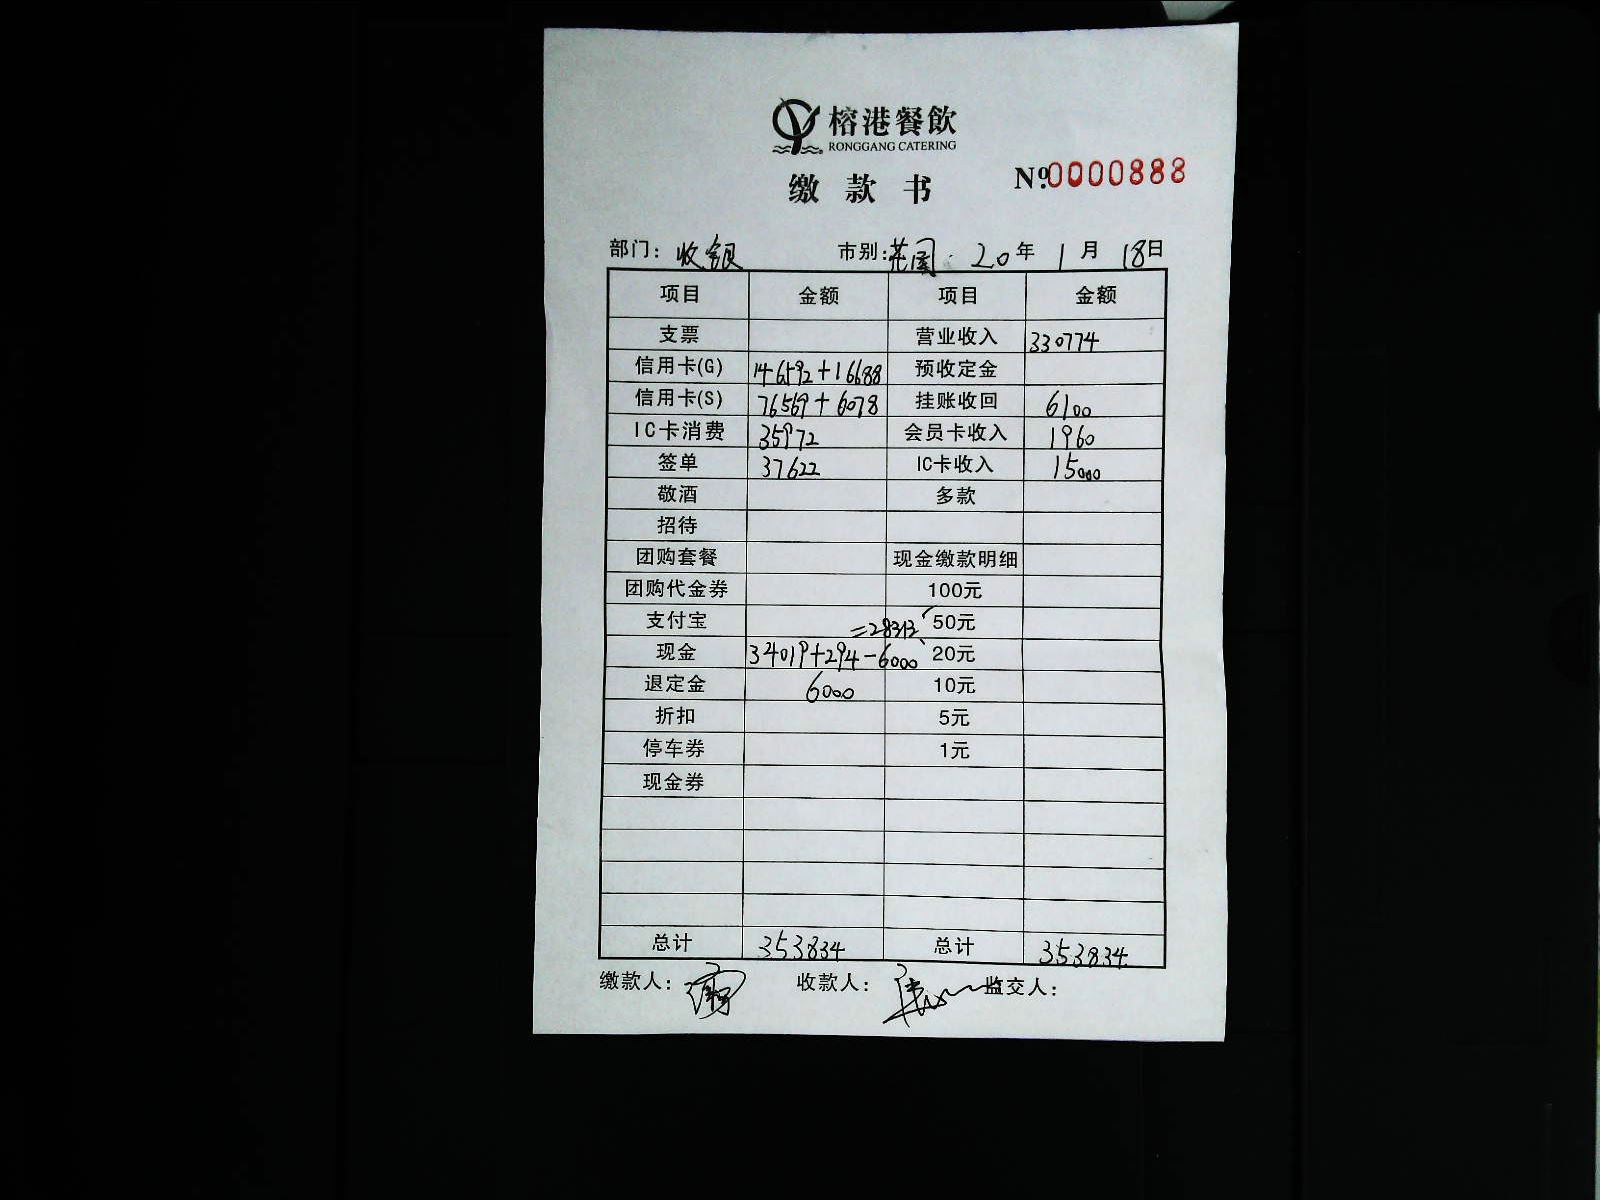 榕港餐飲
RONGGANG CATERING
缴款书
№.0000888
部门：收银 市别：花园 20年 1月 18日
项目 金额 项目 金额
支票 营业收入 330774
信用卡(G) 146592+16688 预收定金
信用卡(S) 76569+6078 挂账收回 6100
IC卡消费 35972 会员卡收入 1960
签单 37622 IC卡收入 15000
敬酒 多款
招待
团购套餐 现金缴款明细
团购代金券 100元
支付宝 =28313 50元
现金 34019+294-6000 20元
退定金 6000 10元
折扣 5元
停车券 1元
现金券
总计 353834 总计 353834
缴款人： 收款人： 监交人：